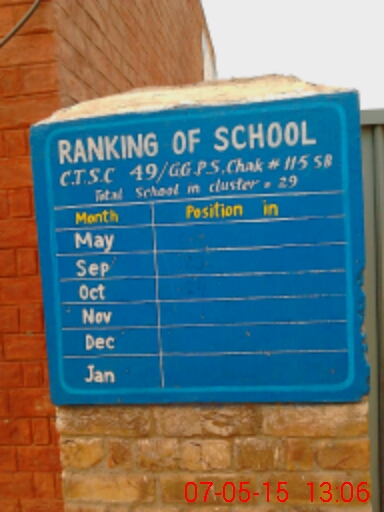 RANKING OF SCHOOL
C.T.S.C 49/GG.P.S. Chak # 115 SB
Total School in cluster = 29
Month Position in
May
Sep
Oct
Nov
Dec
Jan
07-05-15 13:06